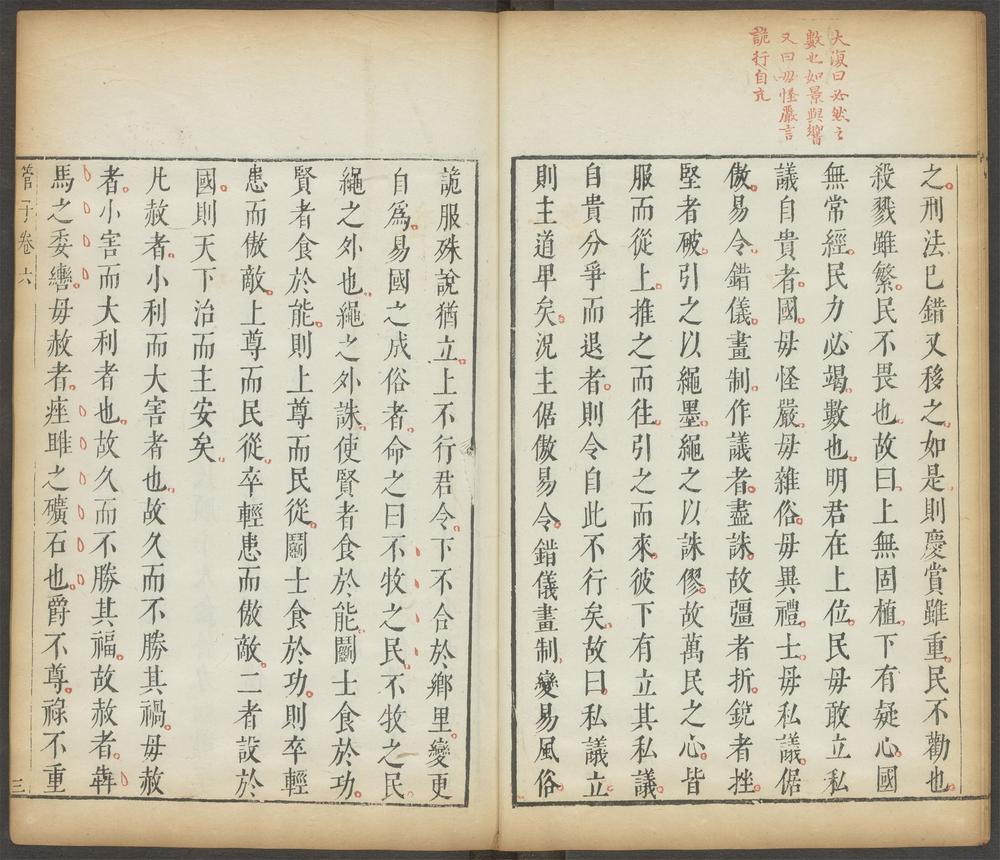 大復曰必然之
數也如景與響
又曰毋怪嚴言
詭行自亢
之刑法已錯又移之如是則慶賞雖重民不勸也
殺戮雖繁民不畏也故曰上無固植下有疑心國
無常經民力必竭數也明君在上位民毋敢立私
議自貴者國毋怪嚴毋雜俗毋異禮士毋私議倨
傲易令錯儀畫制作議者盡誅故彊者折銳者挫
堅者破引之以繩墨繩之以誅僇故萬民之心皆
服而從上推之而往引之而來彼下有立其私議
自貴分爭而退者則令自此不行矣故曰私議立
則主道卑矣況主倨傲易令錯儀畫制變易風俗
詭服殊說猶立上不行君令下不合於鄉里變更
自爲易國之成俗者命之曰不牧之民不牧之民
繩之外也繩之外誅使賢者食於能鬬士食於功
賢者食於能則上尊而民從鬬士食於功則卒輕
患而傲敵上尊而民從卒輕患而傲敵二者設於
國則天下治而主安矣
凡赦者小利而大害者也故久而不勝其禍毋赦
者小害而大利者也故久而不勝其福故赦者犇
馬之委轡毋赦者痤雎之礦石也爵不尊祿不重
管子卷六
三